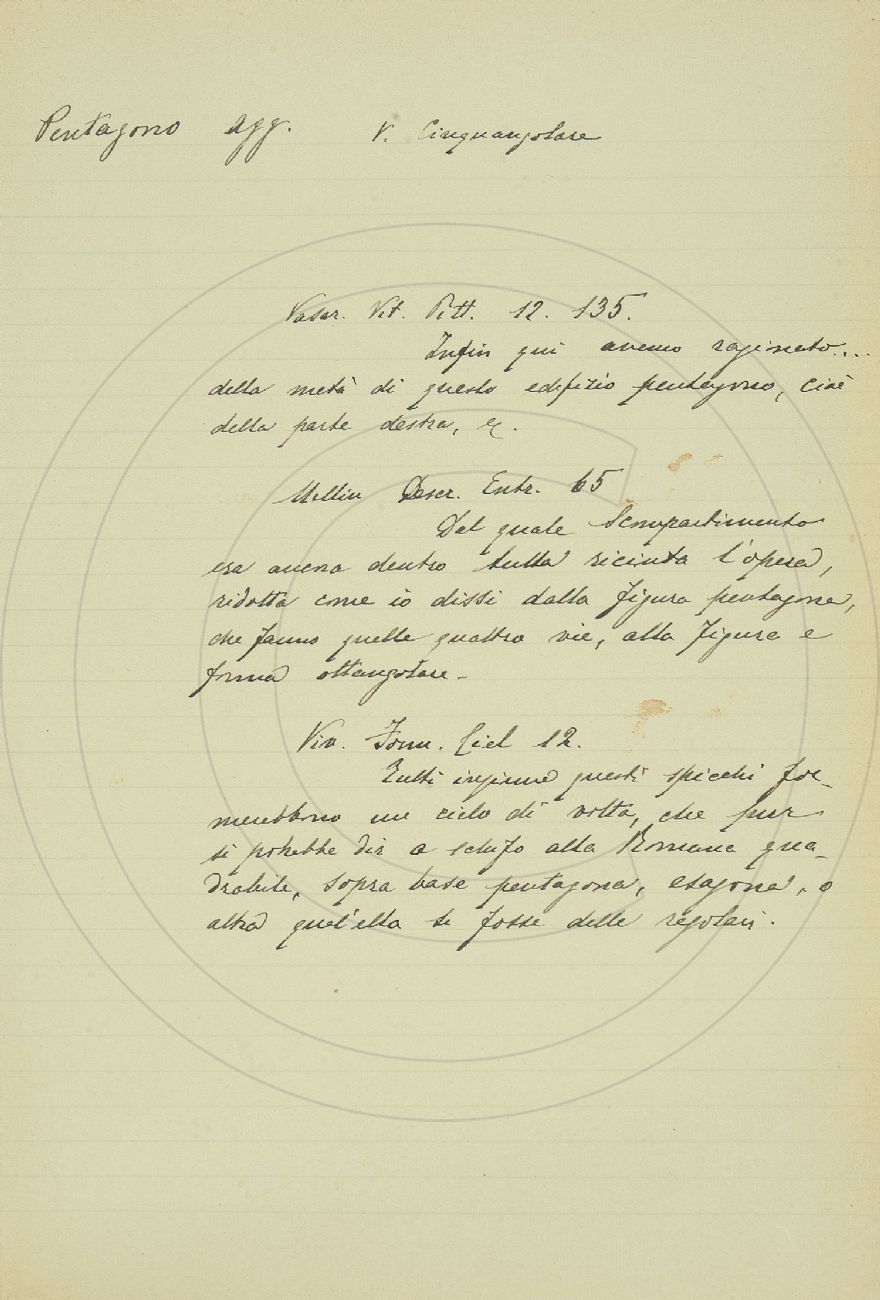 Pentagono agg. V. Cinquangolare
Vasar. Vit. Pitt. 12. 135.
Infin qui avemo ragionato...
della metà di questo edifizio pentagono, cioè
della parte destra, ec.
Mellin Descr. Entr. 65
Dal quale scompartimento
era ancora dentro tutta ricinta l'opera,
ridotta come io dissi dalla figura pentagona,
che fanno quelle quattro vie, alla figura e
forma ottangolare.
Viv. Form. Ciel 12.
Tutti insieme questi spicchi for-
merebbono un cielo di volta, che pur
si potrebbe dir a schifo alla Romana qua-
drabile, sopra base pentagona, esagona, o
altra quel'ella si fosse delle regolari.